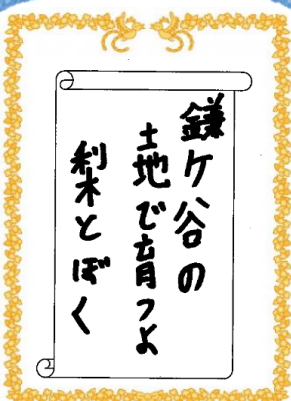 鎌ケ谷の
土地で育つよ
梨とぼく